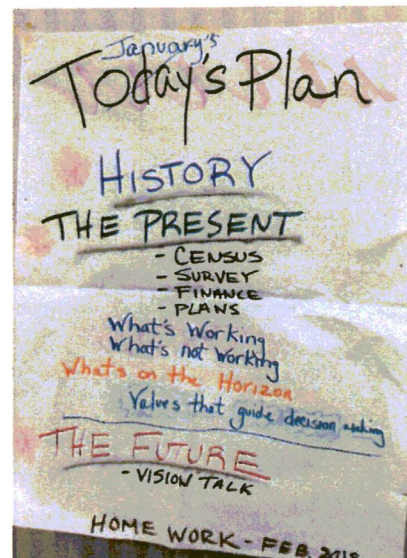 January's
Today's Plan
HISTORY
THE PRESENT
- CENSUS
- SURVEY
- FINANCE
- PLANS
What's Working
What's not Working
What's on the Horizon
Values that guide decision making
THE FUTURE
- VISION TALK
HOME WORK - FEB. 2018